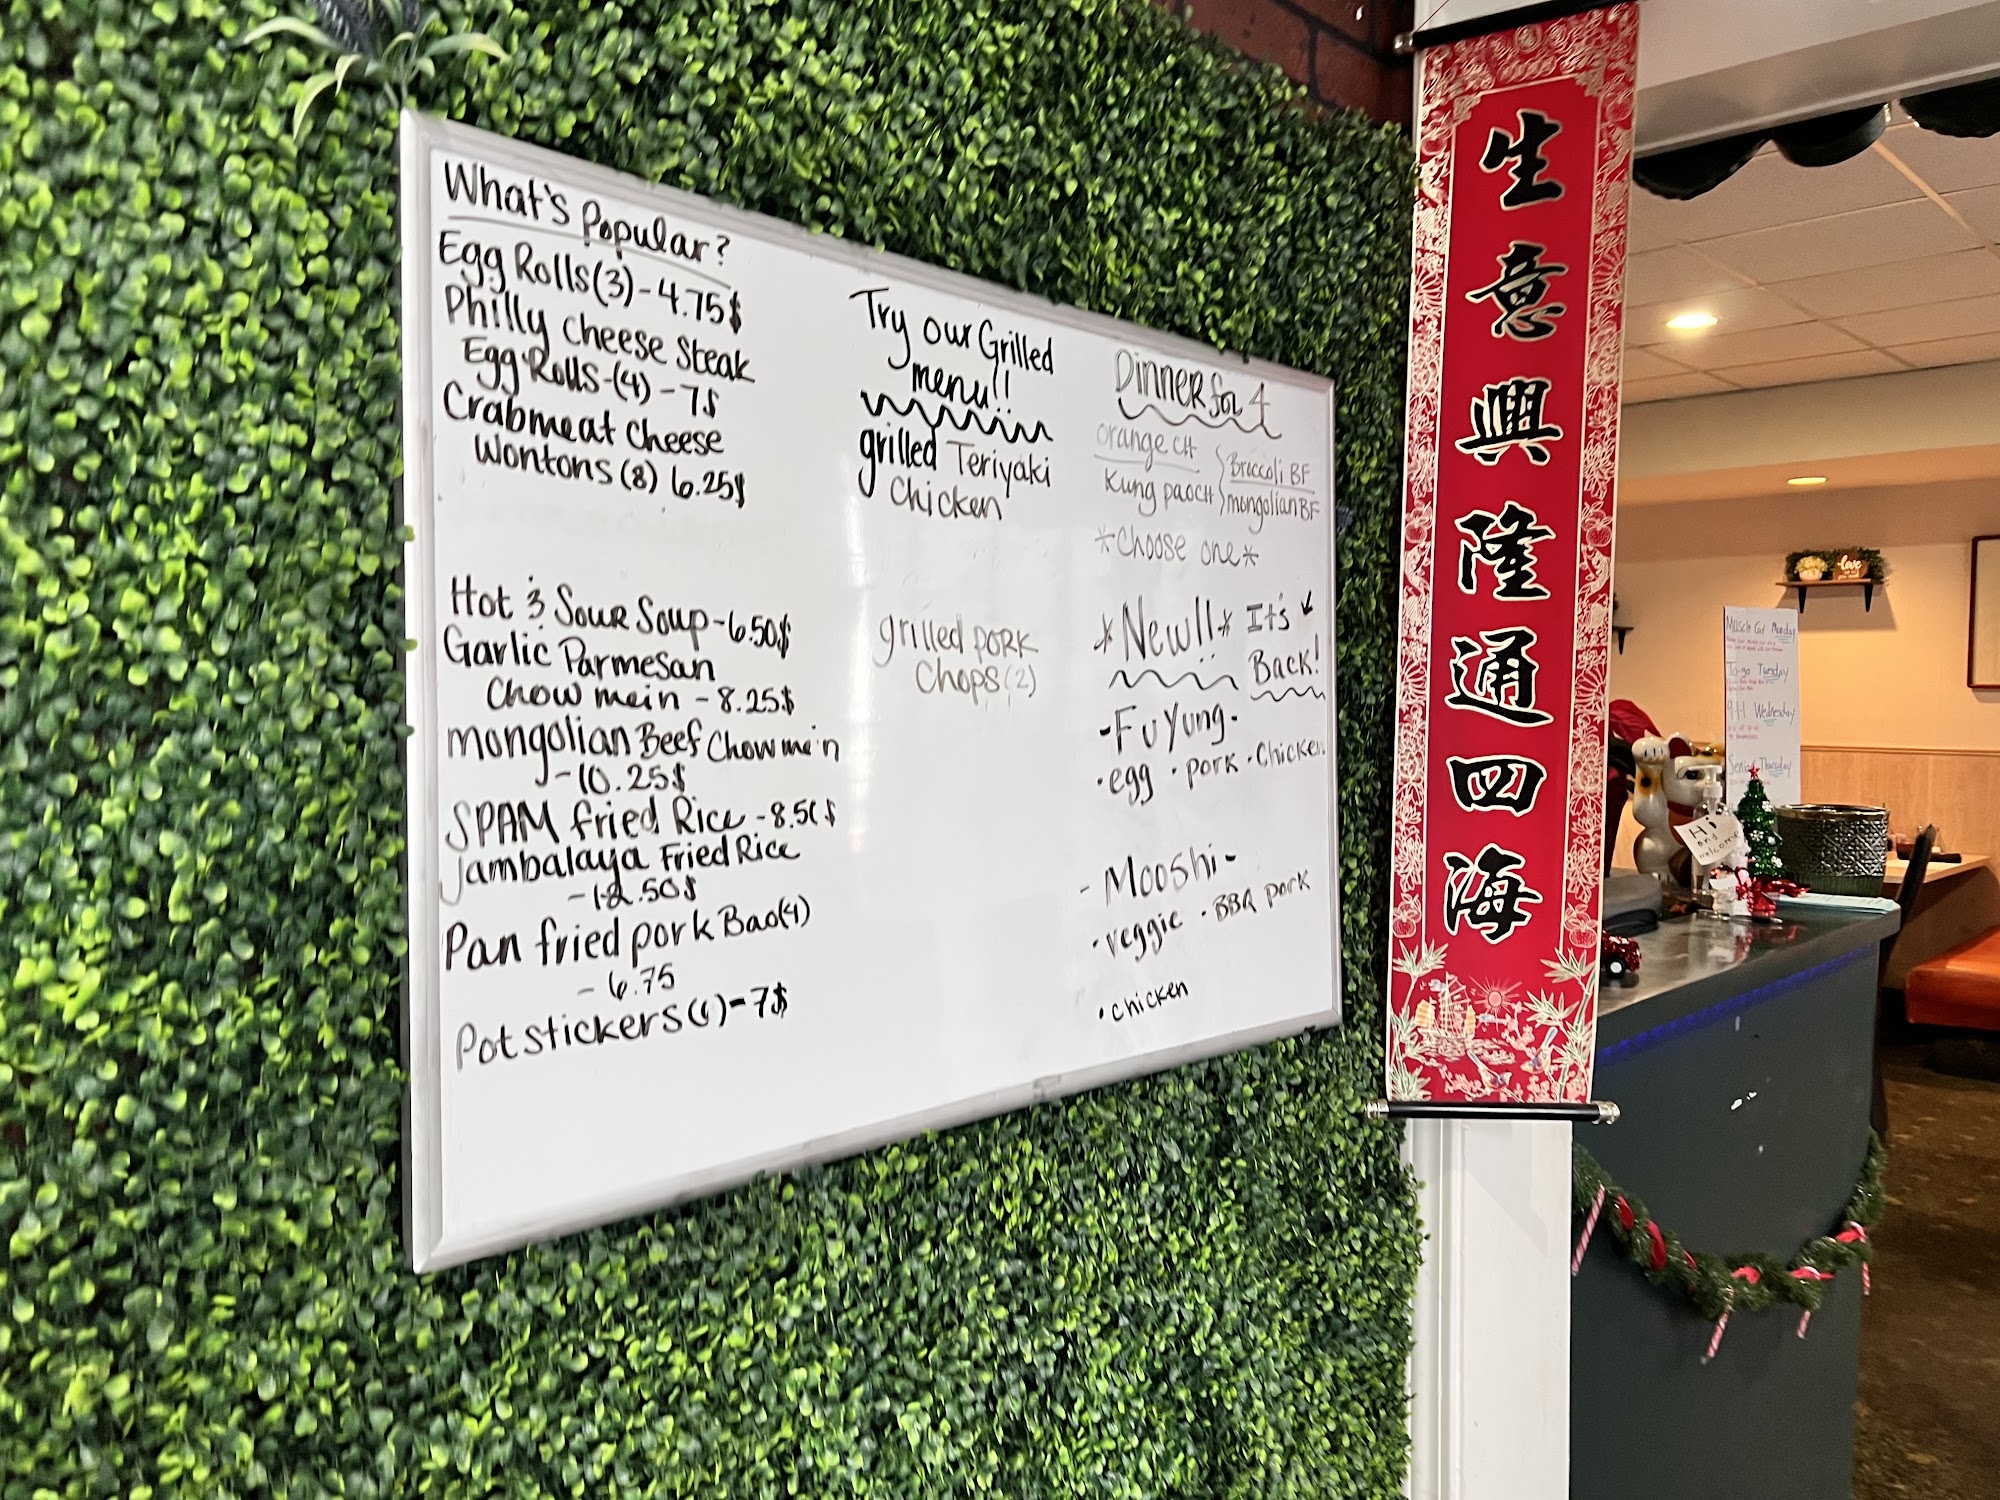 What's Popular?
Egg Rolls(3) - 4.75$
Philly Cheese Steak
Egg Rolls - (4) - 7$
Crabmeat Cheese
Wontons (8) 6.25$
Hot & Sour Soup - 6.50$
Garlic Parmesan
Chow mein - 8.25$
mongolian Beef Chow mein
- 10.25$
SPAM fried Rice - 8.50$
Jambalaya Fried Rice
- 12.50$
Pan fried pork Bao(4)
- 6.75
Potstickers(6) - 7$
Try our Grilled
menu!!
grilled Teriyaki
Chicken
grilled PORK
Chops (2)
Dinner for 4
orange CH
Kung pao CH
Broccoli BF
mongolian BF
*Choose one*
*New!!* It's
Back!
- Fu Yung -
· egg · pork · Chicken
- Mooshi -
· veggie · BBQ pork
· chicken
生意興隆通四海
Muscle Car Monday
To-go Tuesday
911 Wednesday
Senior Thursday
Hi
and
welcome
love